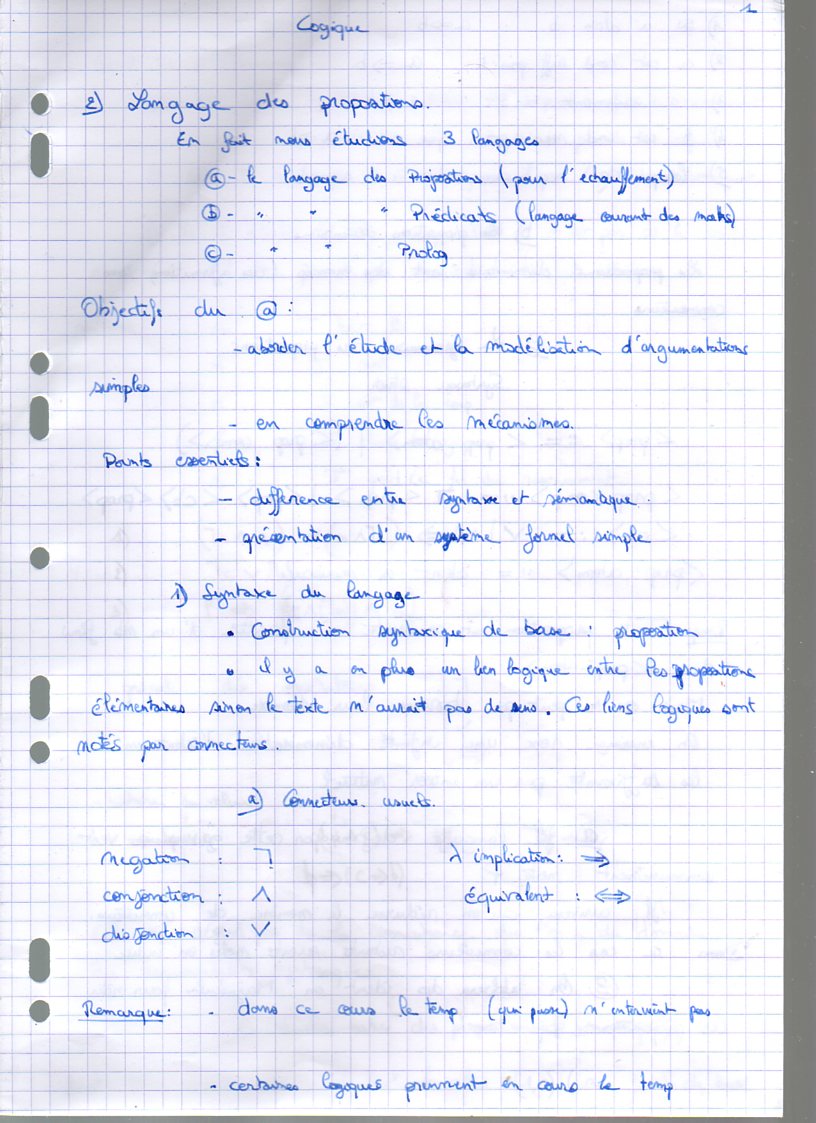 1
Logique
2) Langage des propositions.
En fait nous étudions 3 langages
ⓐ - le langage des Propositions (pour l'echauffement)
ⓑ - " " " Prédicats (langage courant des maths)
ⓒ - " " Prolog
Objectifs du ⓐ :
- aborder l'étude et la modélisation d'argumentations
simples
- en comprendre les mécanismes.
Points essentiels :
- différence entre syntaxe et sémantique.
- présentation d'un système formel simple
1) Syntaxe du langage
• Construction syntaxique de base : proposition
• il y a en plus un lien logique entre les propositions
élémentaires sinon le texte n'aurait pas de sens. Ces liens logiques sont
notés par connecteurs.
a) Connecteurs usuels.
négation : ⅂ λ implication : ⇒
conjonction : ∧ équivalent : ⇔
disjonction : ∨
Remarque : - dans ce cours le temp (qui passe) n'intervient pas
- certaines logiques prennent en cours le temp